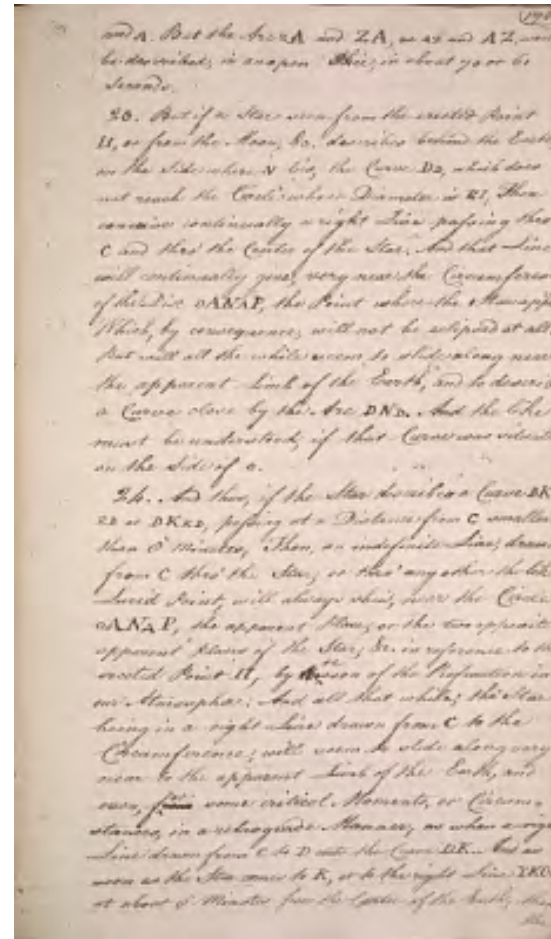 and A. But the Arcs A and ZA, as az and AZ,
be described, in an open Skie, in about 70 or 61
Seconds.
23. But if a Star seen from the erected Point
H, or from the Moon, &c. describes behind the Earth
on the Side where N lies, the Curve DD, which does
not reach the Circle whose Diameter is KI, Then
conceive continually a right Line passing thro'
C and thro' the Center of the Star. And that Line
will continually give, very near the Circumferen
of the Disc ANAP, the Point where the Star app
Which, by consequence, will not be eclipsed at all.
But will all the while seem to slide along near
the apparent Limb of the Earth, and to descri
a Curve close by the Arc DND. And the like
must be understood, if that Curve was
on the Side of o.
24. And thus, if the Star describes a Curve DK
or DKKD, passing at a Distance from C smaller
than 6 Minutes, Then, an indefinite Line, drawn
from C thro' the Star, or thro' any other the like
Lucid Point, will always shew, near the Circle
ANAP, the apparent Place, or the two opposite
apparent Places of the Star, &c. in reference to the
erected Point H, by of the Refraction in
our Atmosphere: And all that while, the Star
being in a right Line drawn from C to the
Circumference, will seem to slide along very
near to the apparent Limb of the Earth, and
even, some critical Moments, or Circum=
stances, in a retrograde Manner, as when a righ
Line drawn from C to D cuts the Curve DK. And as
soon as the Star comes to K, or to the right Line
at about 6 Minutes from the Center of the Earth, then